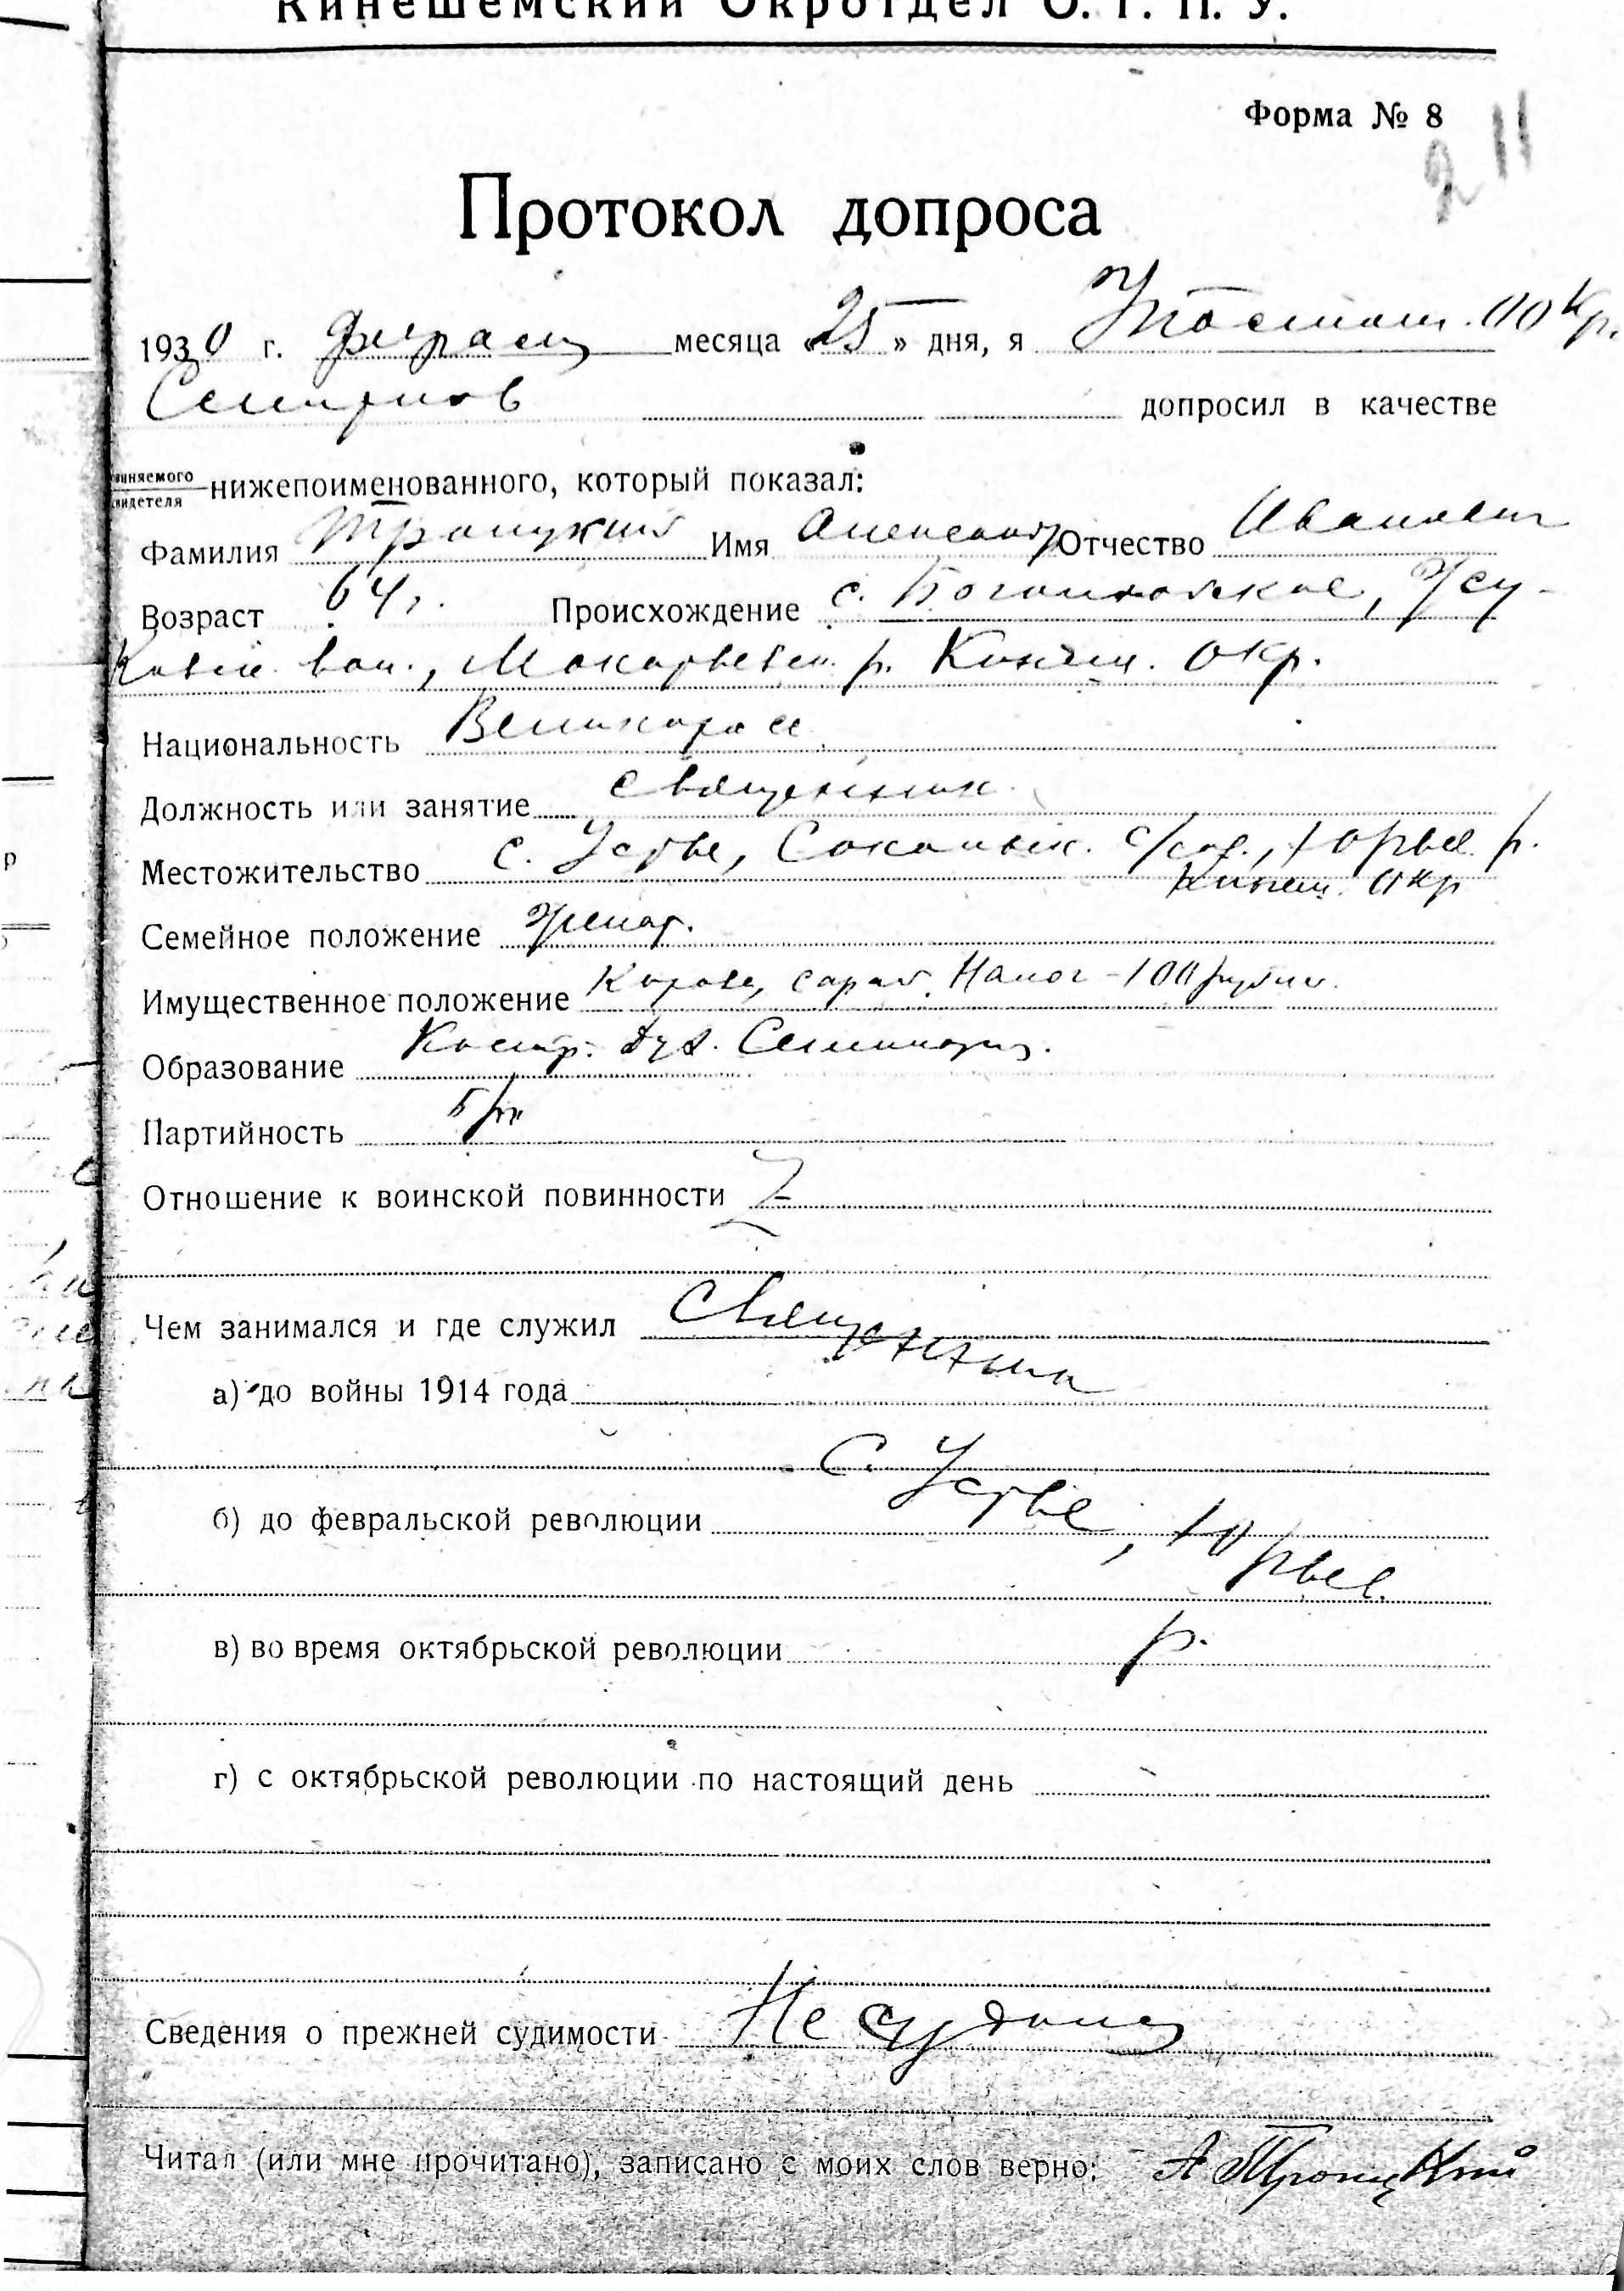 Кинешемский Окротдел О. Г. П. У.
Форма № 8
2 11
Протокол допроса
1930 г. февраля месяца «25» дня, я Уполном. ОО Кр.
Смирнов допросил в качестве
виняемого
свидетеля
нижепоименованного, который показал:
Фамилия Троицкий Имя Александр Отчество Иванович
Возраст 64 г. Происхождение с. Богоявленское,
вол., Макарьевск. р. Кинеш. окр.
Национальность Великоросс
Должность или занятие священник.
Местожительство с. Устье, Сокольск. с/сов., Юрьев. р.
Кинеш. окр
Семейное положение женат.
Имущественное положение Корова, сарай. Налог - 100 рублей.
Образование Костр. дух. Семинария.
Партийность б/п
Отношение к воинской повинности
Чем занимался и где служил Священник
а) до войны 1914 года
с. Устье, Юрьев.
б) до февральской революции
р.
в) во время октябрьской революции
г) с октябрьской революции по настоящий день
Сведения о прежней судимости Не судим
Читал (или мне прочитано), записано с моих слов верно: А Троицкий